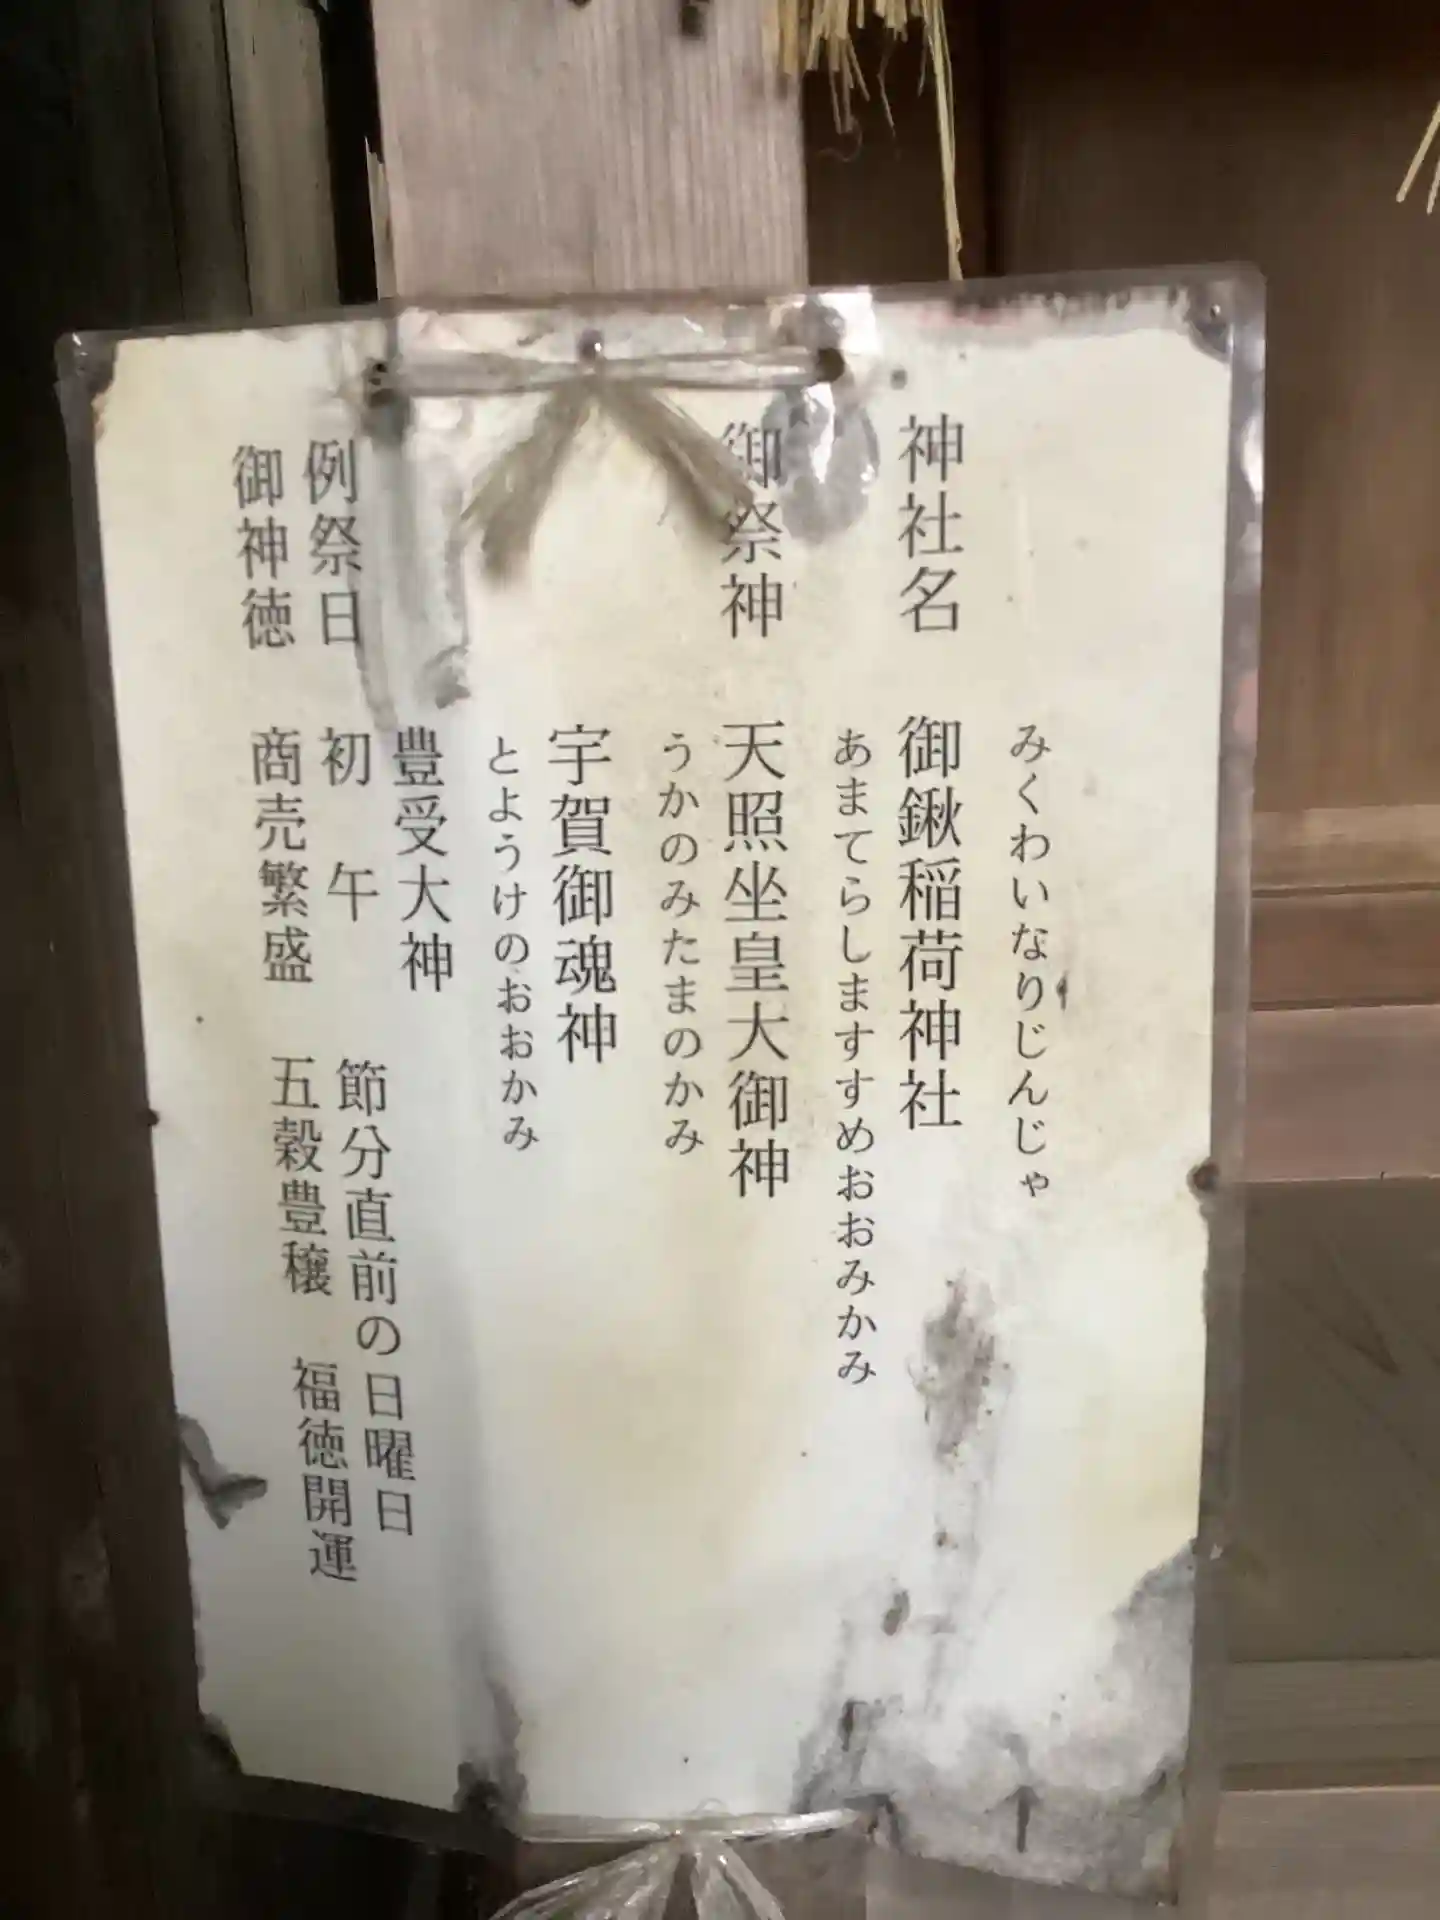 みくわいなりじんじゃ
神社名 御鍬稲荷神社
あまてらしますすめおおみかみ
御祭神 天照坐皇大御神
うかのみたまのかみ
宇賀御魂神
とようけのおおかみ
豊受大神
例祭日 初 午 節分直前の日曜日
御神徳 商売繁盛 五穀豊穣 福徳開運